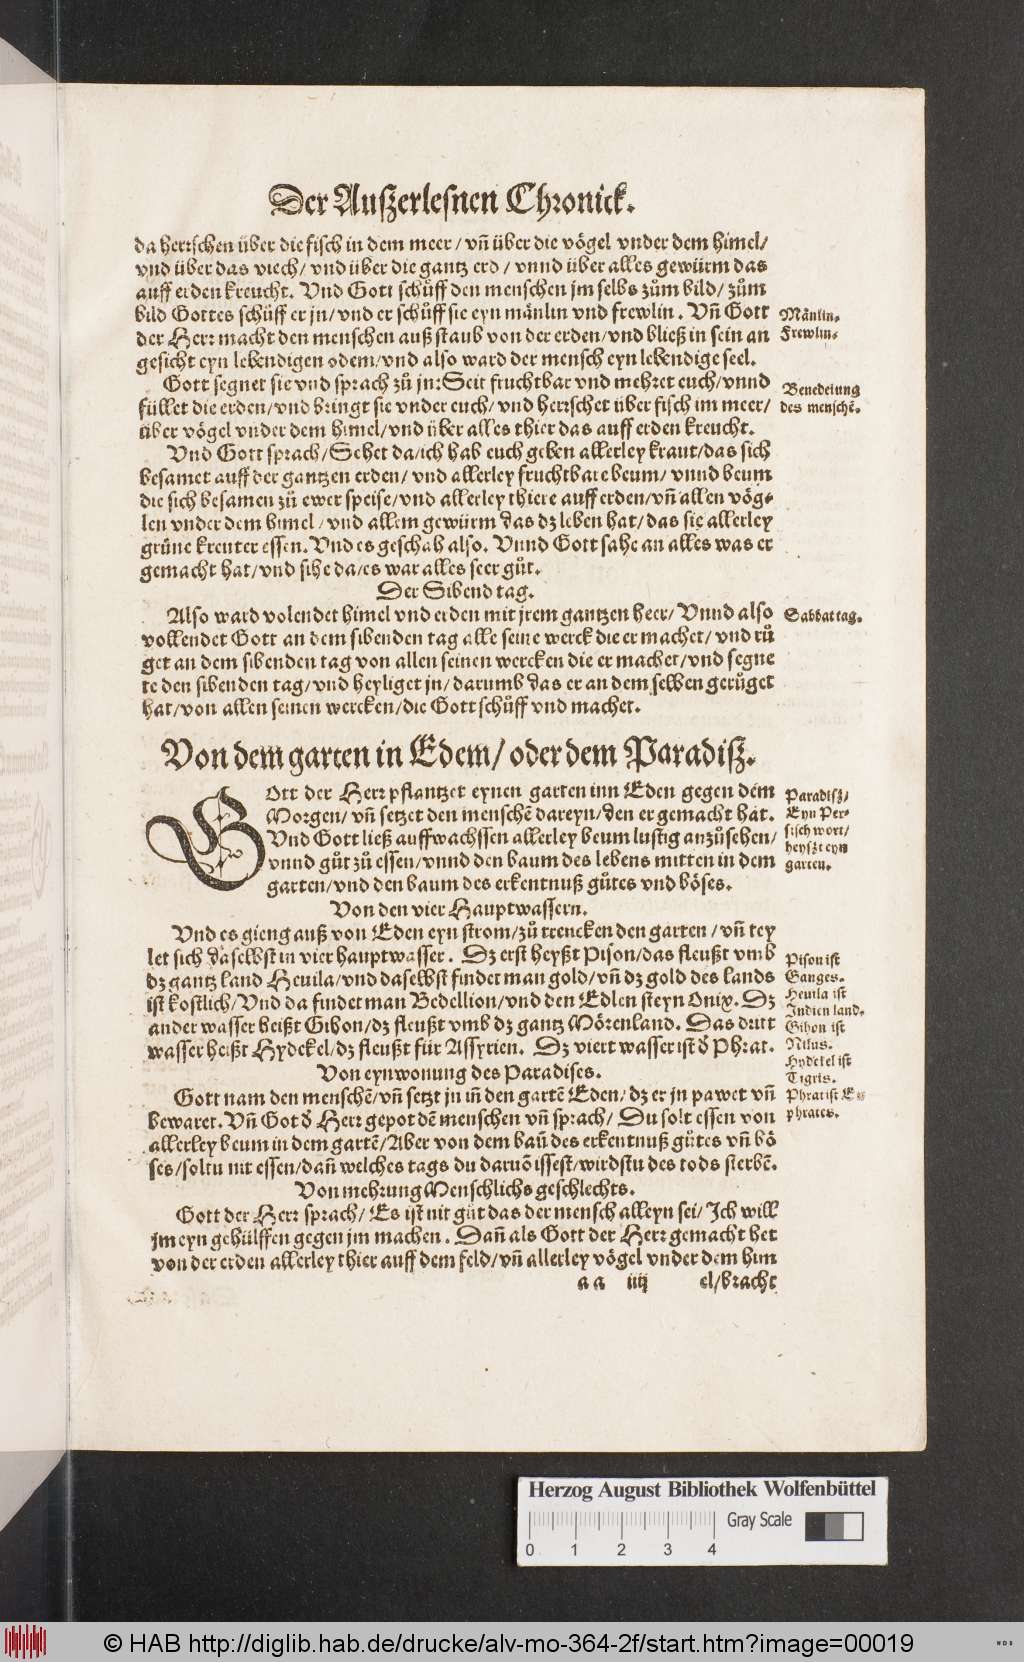 Der Auszerlesnen Chronick.
da herrschen über die fisch in dem meer / vñ über die vögel vnder dem himel/
vnd über das viech/ vnd über die gantz erd / vnnd über alles gewürm das
auff erden kreucht. Vnd Gott schůff den menschen jm selbs zům bild/ zům
bild Gottes schůff er jn/ vnd er schůff sie eyn mänlin vnd frewlin. Vñ Gott
Mänlin.
der Herr macht den menschen auß staub von der erden/ vnd bließ in sein an
Frewlin.
gesicht eyn lebendigen odem/ vnd also ward der mensch eyn lebendige seel.
Gott segnet sie vnd sprach zů jn: Seit fruchtbar vnd mehret euch/ vnnd
Benedeiung
füllet die erden/ vnd bringt sie vnder euch/ vnd herrschet über fisch im meer/
des menschẽ.
über vögel vnder dem himel/ vnd über alles thier das auff erden kreucht.
Vnd Gott sprach/ Sehet da/ ich hab euch geben allerley kraut/ das sich
besamet auff der gantzen erden/ vnd allerley fruchtbare beum/ vnnd beum
die sich besamen zů ewer speise/ vnd allerley thiere auff erden/ vñ allen vög-
len vnder dem himel / vnd allem gewürm das dz leben hat/ das sie allerley
grüne kreuter essen. Vnd es geschah also. Vnnd Gott sahe an alles was er
gemacht hat/ vnd sihe da/ es war alles seer gůt.
Der Sibend tag.
Also ward volendet himel vnd erden mit jrem gantzen heer/ Vnnd also
Sabbat tag.
vollendet Gott an dem sibenden tag alle seine werck die er machet/ vnd rů
get an dem sibenden tag von allen seinen wercken die er machet/ vnd segne
te den sibenden tag/ vnd heyliget jn/ darumb das er an dem selben gerůget
hat/ von allen seinen wercken/ die Gott schůff vnd machet.
Von dem garten in Edem/ oder dem Paradisz.
GOtt der Herr pflantzet eynen garten inn Eden gegen dem
Paradisz/
Morgen/ vñ setzet den menschẽ dareyn/ den er gemacht hat.
Eyn Per-
Vnd Gott ließ auffwachssen allerley beum lustig anzůsehen/
sisch wort/
vnnd gůt zů essen/ vnnd den baum des lebens mitten in dem
heyszt eyn
garten/ vnd den baum des erkentnuß gůtes vnd böses.
garten.
Von den vier Hauptwassern.
Vnd es gieng auß von Eden eyn strom/ zů trencken den garten / vñ tey
let sich daselbst in vier hauptwasser. Dz erst heyßt Pison/ das fleußt vmb
Pison ist
dz gantz land Heuila/ vnd daselbst findet man gold/ vñ dz gold des lands
Ganges.
ist kostlich/ Vnd da findet man Bedellion/ vnd den Edlen steyn Onix. Dz
Heuila ist
Indien land.
ander wasser heißt Gihon/ dz fleußt vmb dz gantz Mörenland. Das dritt
Gihon ist
wasser heißt Hydekel/ dz fleußt für Assyrien. Dz viert wasser ist d̃ Phrat.
Nilus.
Hydekel ist
Von eynwonung des Paradises.
Tigris.
Gott nam den menschẽ/ vñ setzt jn iñ den gartẽ Eden/ dz er jn pawet vñ
Phrat ist Eu-
bewaret. Vñ Got d̃ Herr gepot dẽ menschen vñ sprach/ Du solt essen von
phrates.
allerley beum in dem gartẽ/ Aber von dem baũ des erkentnuß gůtes vñ bö
ses/ soltu nit essen/ dañ welches tags du daruõ issest/ wirdstu des tods sterbẽ.
Von mehrung Menschlichs geschlechts.
Gott der Herr sprach/ Es ist nit gůt das der mensch alleyn sei/ Ich will
jm eyn gehülffen gegen jm machen. Dañ als Gott der Herr gemacht het
von der erden allerley thier auff dem feld/ vñ allerley vögel vnder dem him
aa iiij el/ bracht
Herzog August Bibliothek Wolfenbüttel
Gray Scale
0 1 2 3 4
© HAB http://diglib.hab.de/drucke/alv-mo-364-2f/start.htm?image=00019